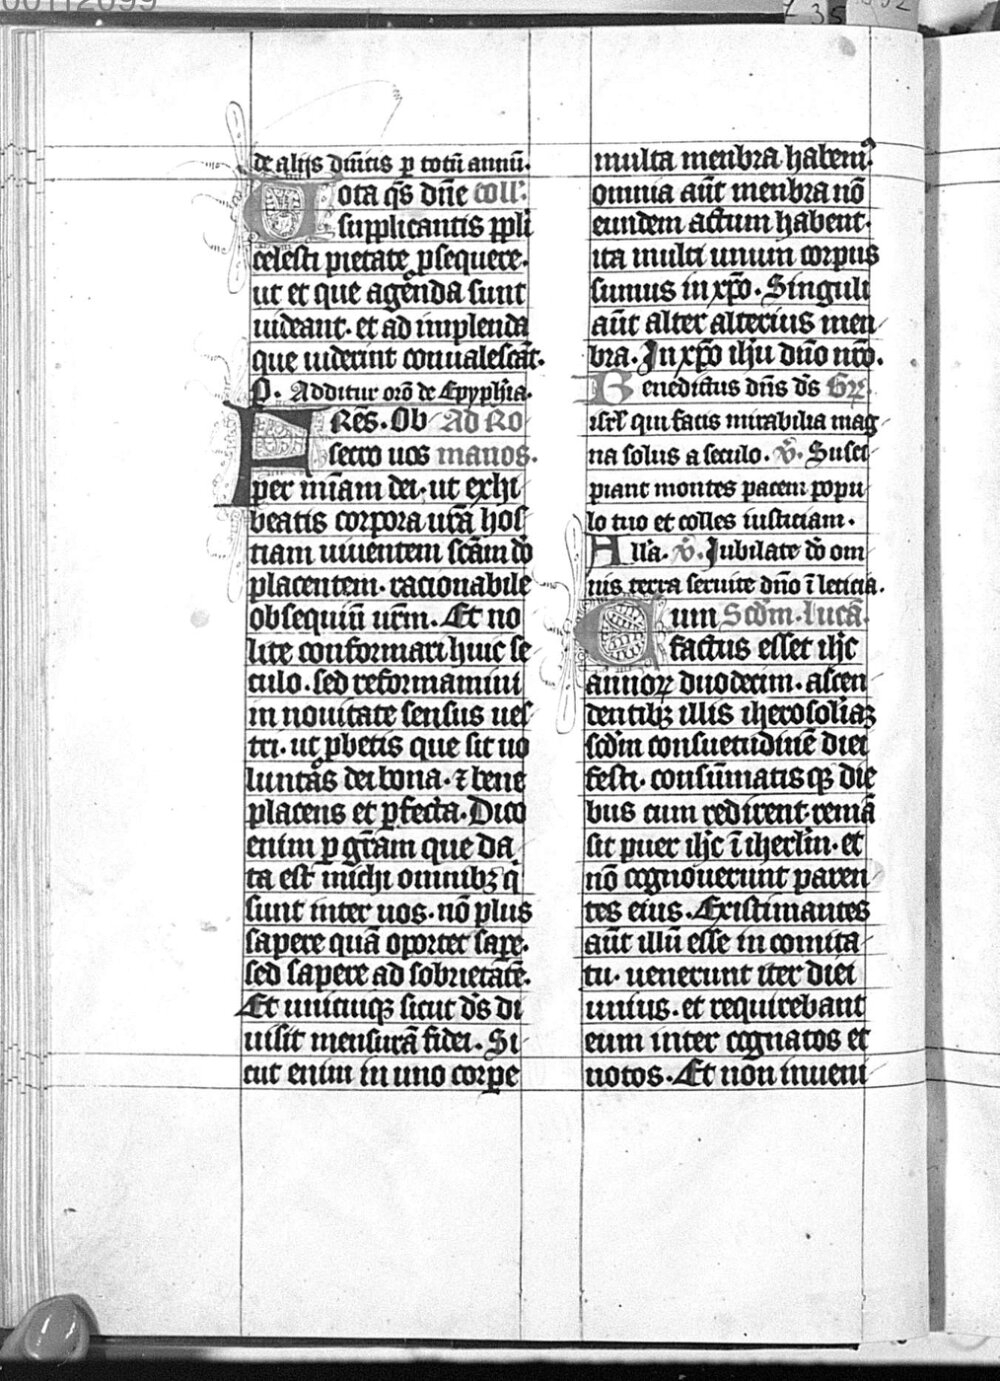 de alijs dn̄icis ꝑ totū annū.
Vota q̄s dn̄e coll'.
supplicantis ppl̄i
celesti pietate ꝓsequere.
ut et que agenda sunt
uideant. et ad implenda
que uiderint conualescāt.
P. Additur orō de Epyphīa.
FRēs. Ob Ad Ro
secro uos manos.
per mīam dei. ut exhi
beatis corpora ur̄a hos
tiam uiuentem scām dō
placentem. racionabile
obsequiū ur̄m. Et no
lite conformari huic se
culo. sed reformamini
in nouitate sensus ues
tri. ut ꝓbetis que sit uo
luntas dei bona. ⁊ bene
placens et ꝑfecta. Dico
enim ꝑ gr̄am que da
ta est michi omnibꝫ q
sunt inter uos. nō plus
sapere quā oportet saꝑe.
sed sapere ad sobrietatē.
Et unicuiqꝫ sicut dˢ di
uisit mensurā fidei. Si
cut enim in uno corꝑe
multa menbra habemꝰ
omnia aūt menbra nō
eundem actum habent.
ita multi unum corpus
sumus in xp̄o. Singuli
aūt alter alterius men
bra. In xp̄o ih̄u dn̄o nr̄o.
Benedictus dn̄s dˢ Gr̄.
isrl̄ qui facis mirabilia mag
na solus a seculo. v̄. Susci
piant montes pacem popu
lo tuo et colles iusticiam.
All'a. v̄. Iubilate dō om
nis terra seruite dn̄o ī leticia.
Cum Scd̄m. Lucā.
factus esset ih̄c
annoꝝ duodecim. ascen
dentibꝫ illis iherosolimā
scd̄m consuetudinē diei
festi. consūmatisqꝫ die
bus cum redirent. remā
sit puer ih̄c ī iherl̄m. et
nō cognouerunt paren
tes eius. Existimantes
aūt illū esse in comita
tu. uenerunt iter diei
unius. et requirebant
eum inter cognatos et
notos. Et non inueni